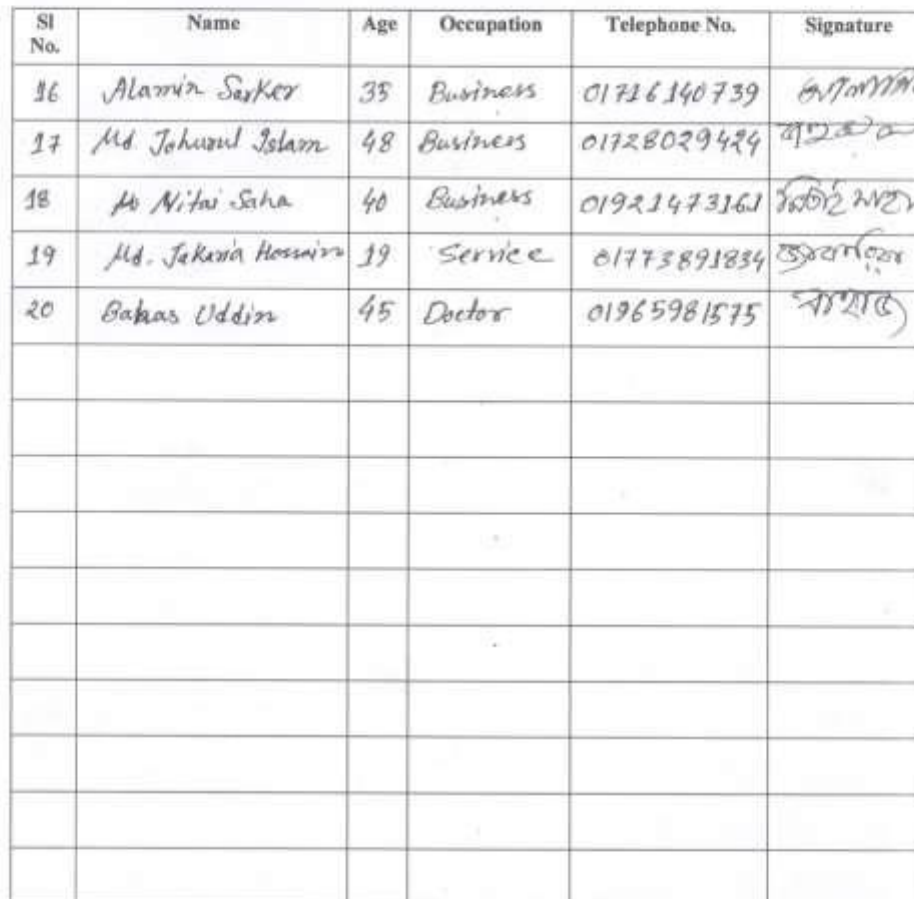 Sl No. Name Age Occupation Telephone No. Signature
16 Alamin Sarker 35 Business 01716140739
17 Md. Johurul Islam 48 Business 01728029424
18 Nitai Saha 40 Business 01921473161 নিতাই সাহা
19 Md. Jakaria Hossain 19 Service 01773891834
20 Bakas Uddin 45 Doctor 01965981575